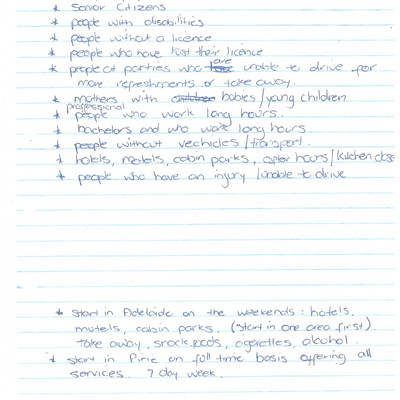 * Senior Citizens
* people with disabilities
* people without a licence
* people who have lost their licence
* people at parties who are unable to drive for
more refreshments or take away.
* mothers with children babies/young children
professional
* people who work long hours.
* bachelors and who work long hours
* people without vechicles/transport.
* hotels, motels, cabin parks, after hours/kitchen close
* people who have an injury /unable to drive
* start in Adelaide on the weekends: hotels,
motels, cabin parks. (start in one area first).
take away, snack foods, cigarettes, alcohol.
* start in Pirie on full time basis offering all
services. 7 day week.